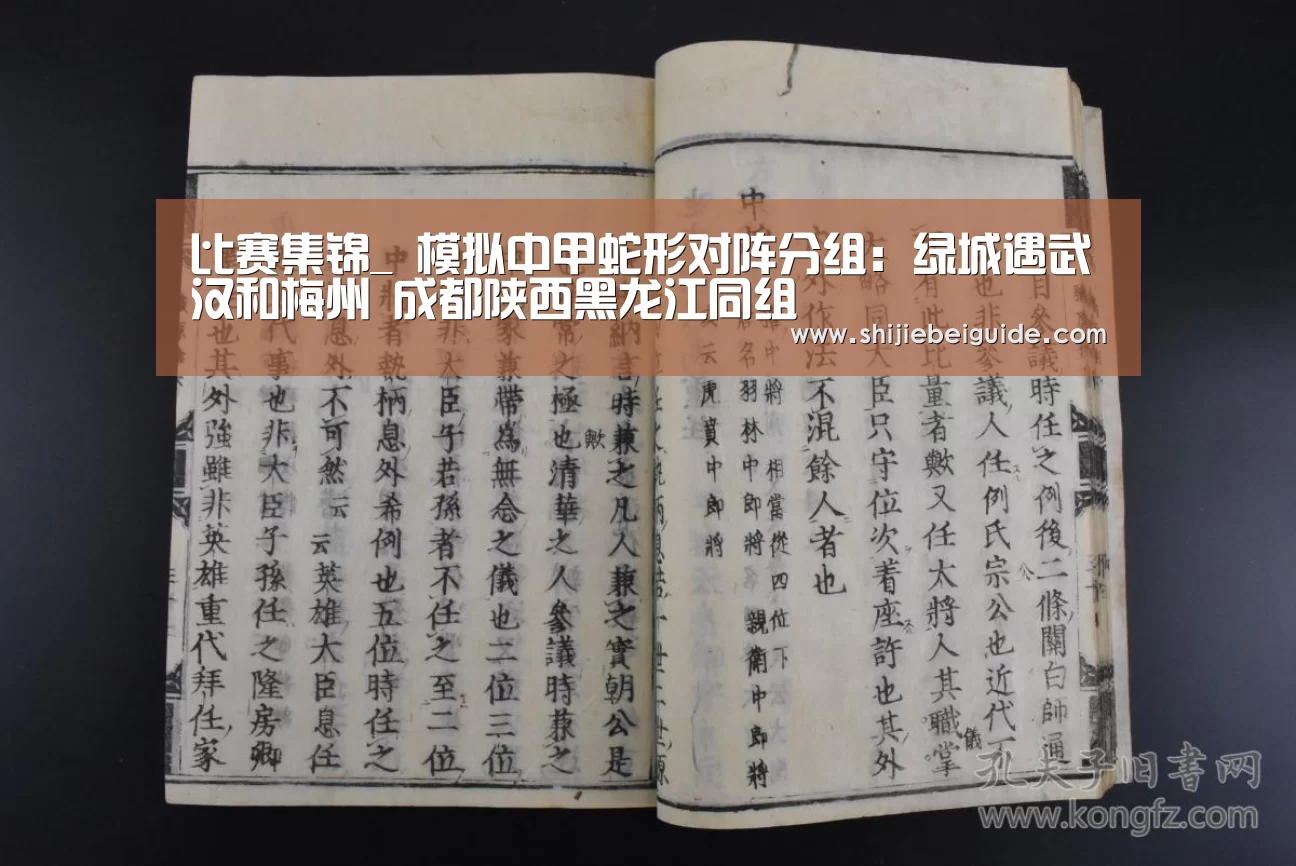 比赛集锦_ 模拟中甲蛇形对阵分组：绿城遇武
汉和梅州 成都陕西黑龙江同组
www.shijiebeiguide.com
議時任之例後二條關白師通
公
也非參議人任例氏宗公也近代
儀
有此比量者歟又任大將人其職掌
略同大臣只守位次着座許也其外
外作法不混餘人者也
中
中將 相當從四位下
名羽林中郎將 親衛中郎將
云虎賁中郎將
納言時兼之凡人兼之實朝公是
歟
常之極也清華之人參議時兼之
家兼帶為無念之儀也二位三位
非大臣子若孫者不任之至二位
中將者執柄息外希例也五位時任之
息外不可然云云英雄大臣息任
代事也非大臣子孫任之隆房卿
也其外強雖非英雄重代拜任家
孔夫子旧书网
www.kongfz.com